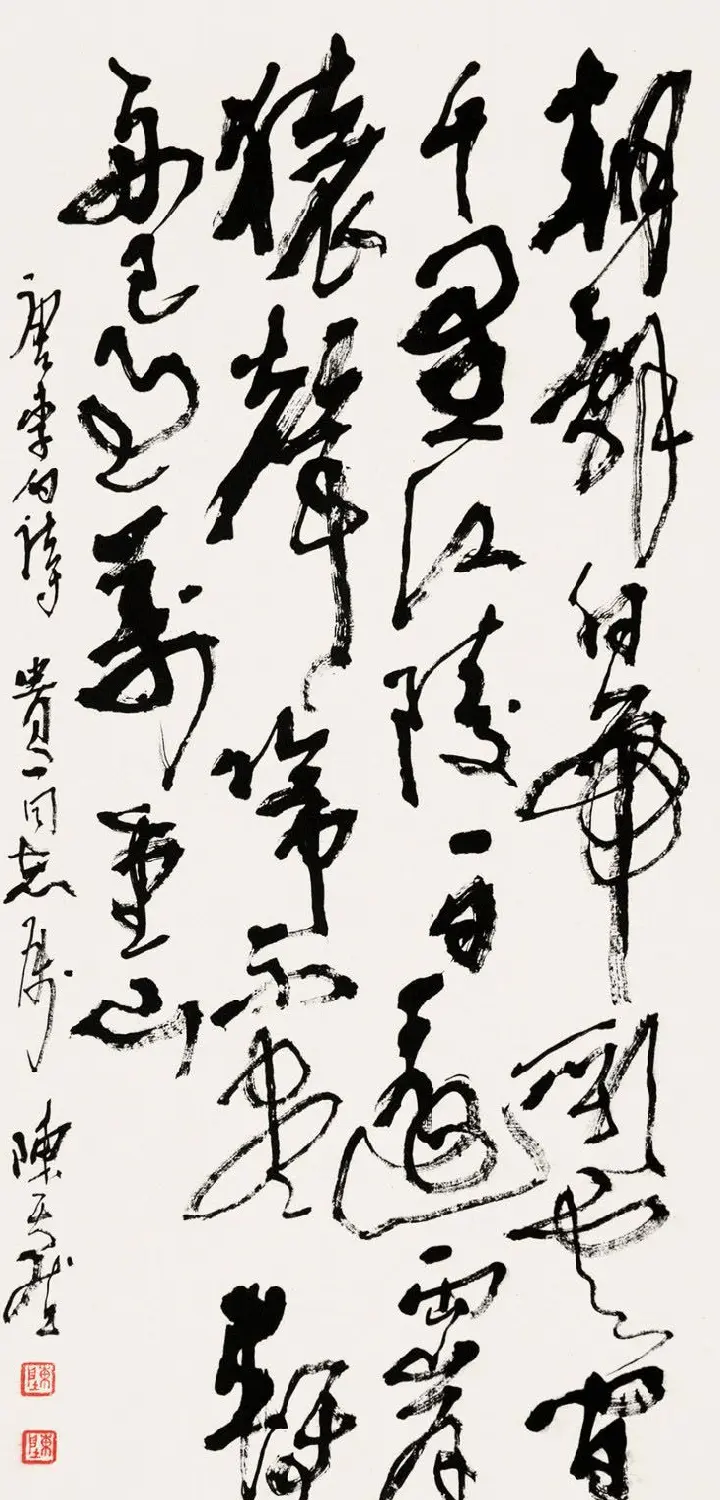 朝辭白帝彩雲間
千里江陵一日還兩岸
猿聲啼不盡輕
舟已過萬重山
唐李白詩 貴一同志屬 陳天然